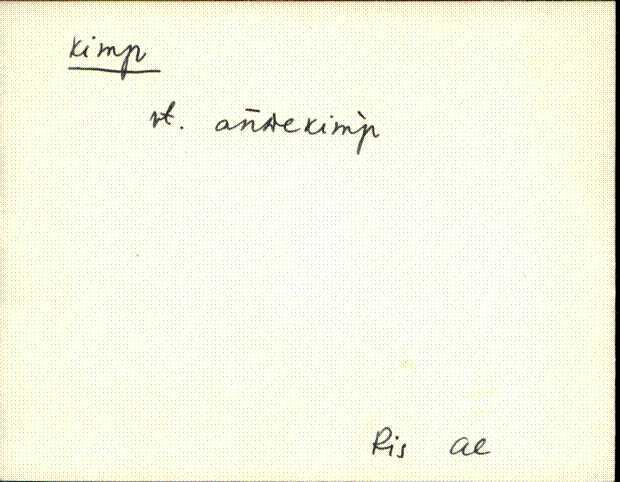 kimp
vt. an̄ᴅekim̀p
Ris Al